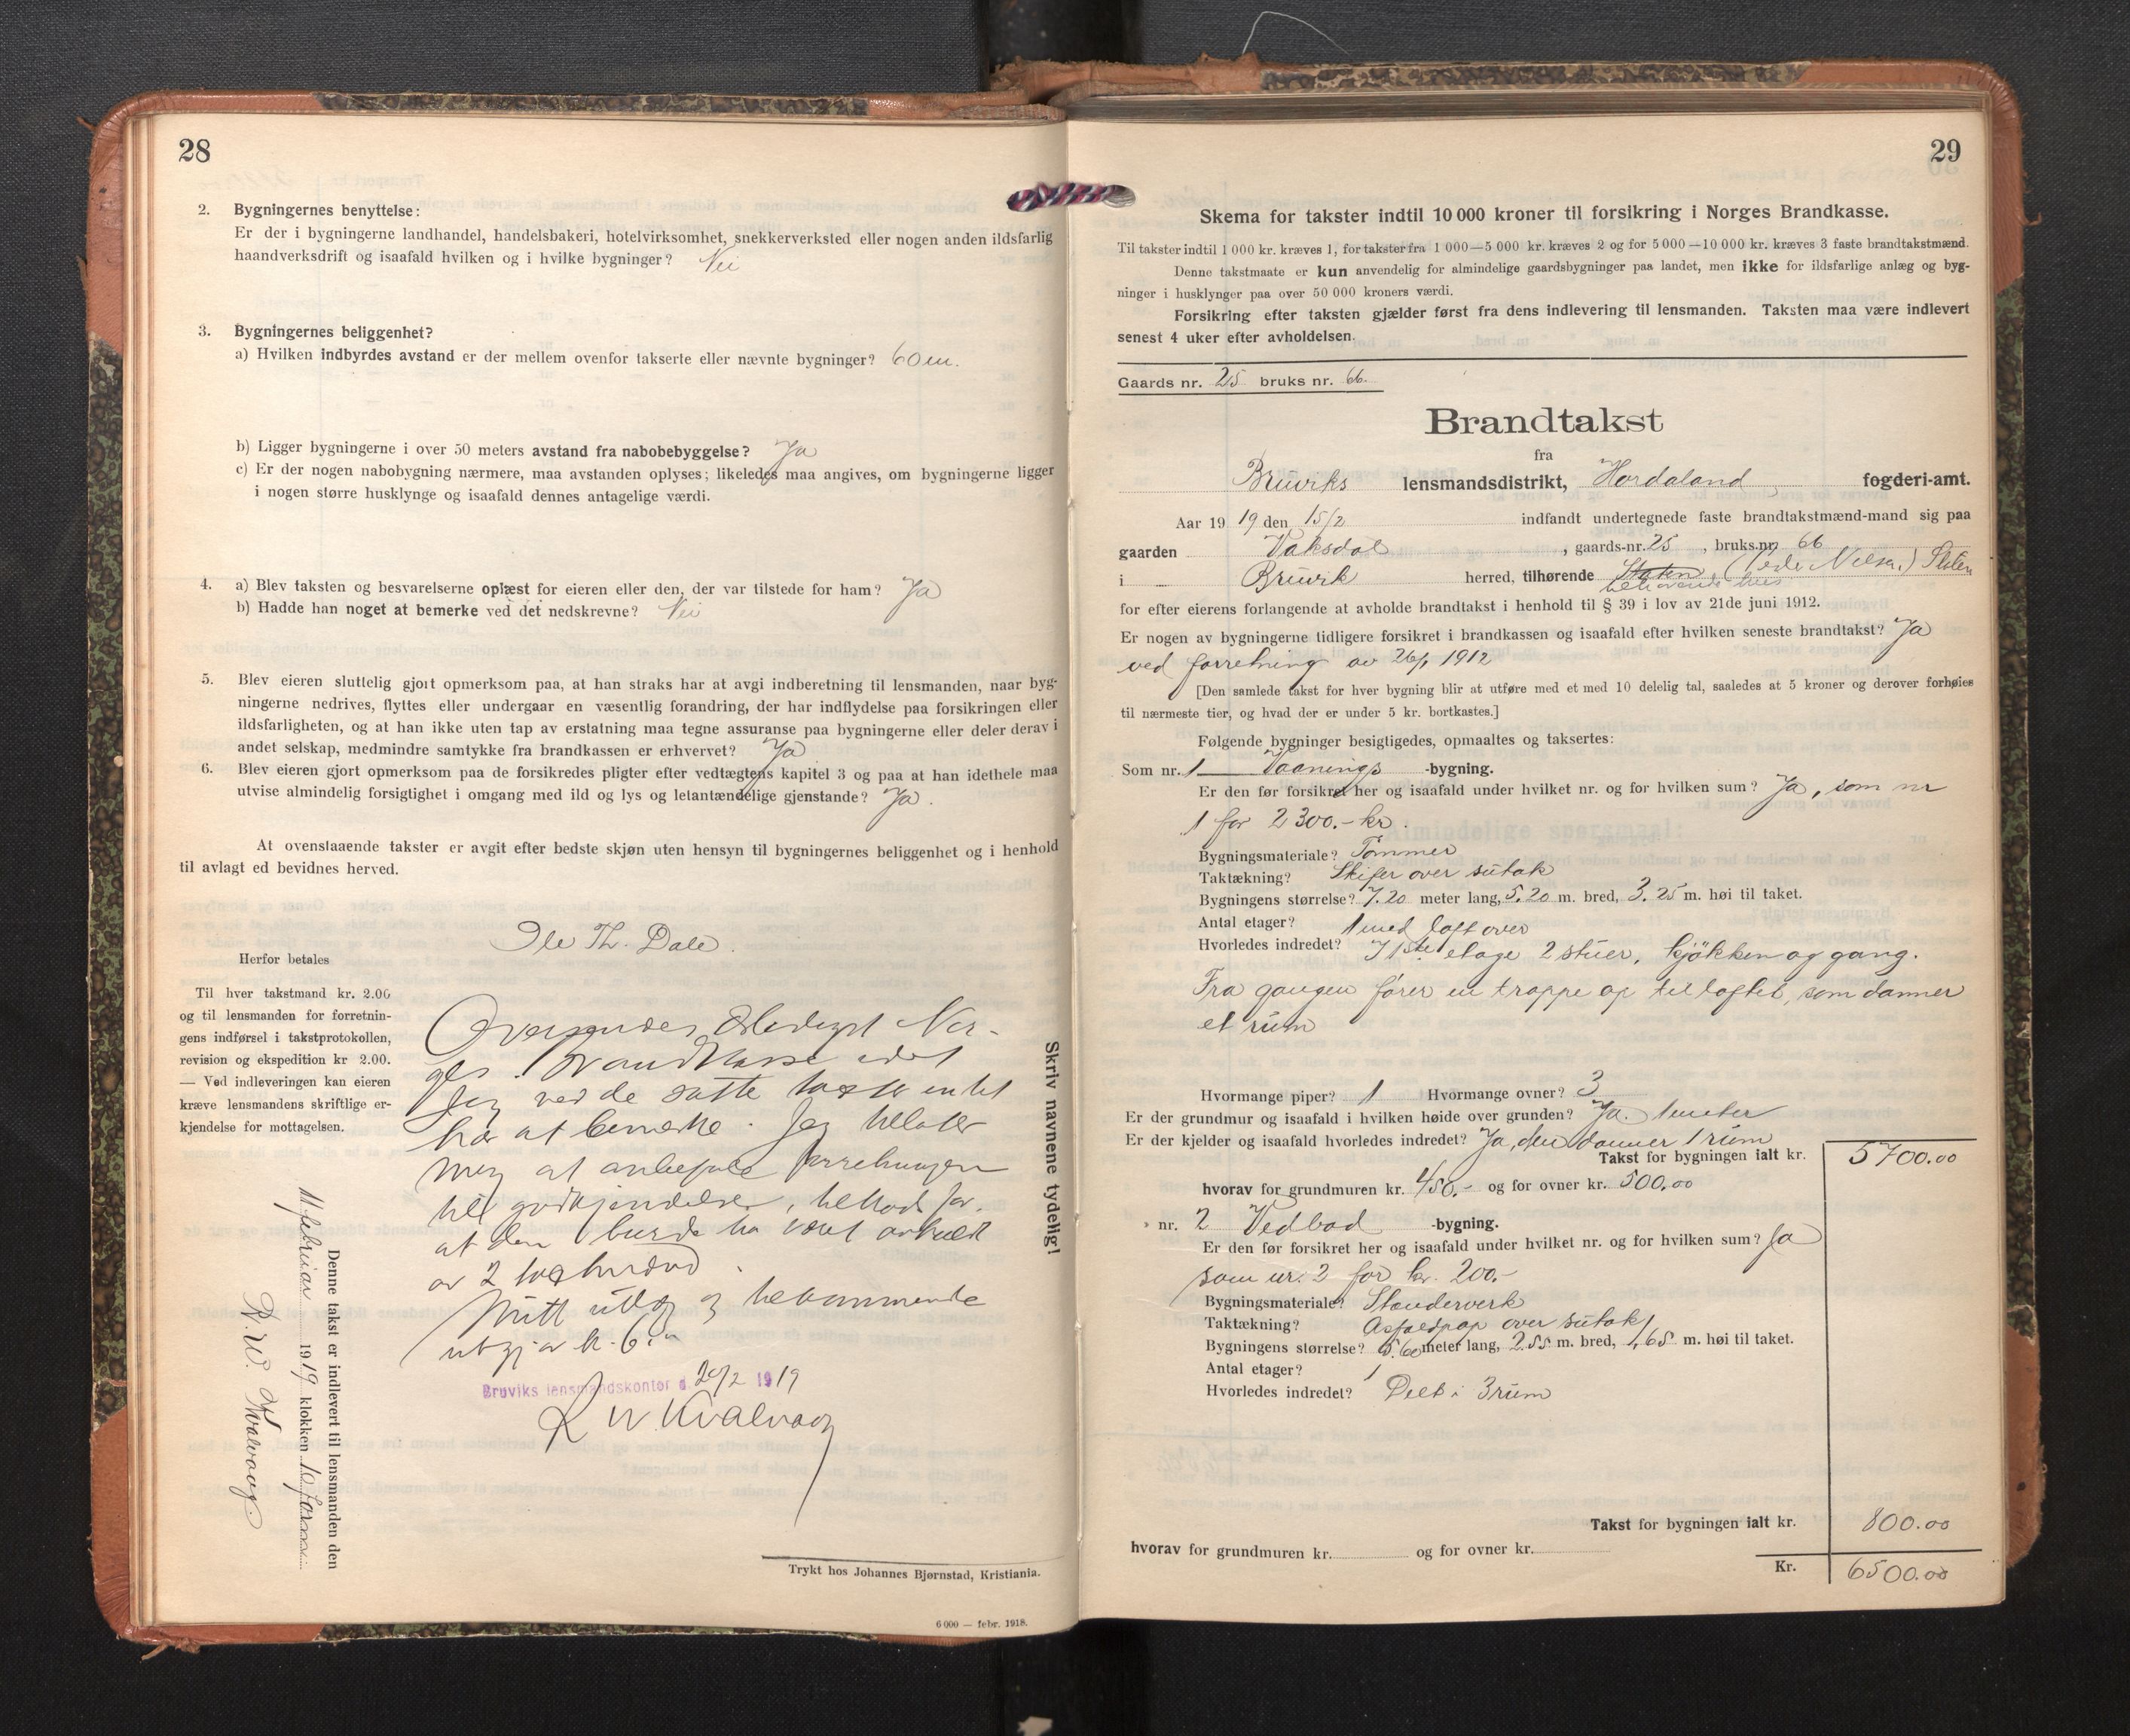 28
2. Bygningernes benyttelse:
Er der i bygningerne landhandel, handelsbakeri, hotelvirksomhet, snekkerverksted eller nogen anden ildsfarlig
haandverksdrift og isaafald hvilken og i hvilke bygninger? Nei
3. Bygningernes beliggenhet?
a) Hvilken indbyrdes avstand er der mellem ovenfor takserte eller nævnte bygninger? 60 m.
b) Ligger bygningerne i over 50 meters avstand fra nabobebyggelse? Ja
c) Er der nogen nabobygning nærmere, maa avstanden oplyses; likeledes maa angives, om bygningerne ligger
i nogen større husklynge og isaafald dennes antagelige værdi.
4. a) Blev taksten og besvarelserne oplæst for eieren eller den, der var tilstede for ham? Ja
b) Hadde han noget at bemerke ved det nedskrevne? Nei
5. Blev eieren sluttelig gjort opmerksom paa, at han straks har at avgi indberetning til lensmanden, naar byg-
ningerne nedrives, flyttes eller undergaar en væsentlig forandring, der har indflydelse paa forsikringen eller
ildsfarligheten, og at han ikke uten tap av erstatning maa tegne assuranse paa bygningerne eller deler derav i
andet selskap, medmindre samtykke fra brandkassen er erhvervet? Ja
6. Blev eieren gjort opmerksom paa de forsikredes pligter efter vedtægtens kapitel 3 og paa at han idethele maa
utvise almindelig forsigtighet i omgang med ild og lys og letantændelige gjenstande? Ja.
At ovenstaaende takster er avgit efter bedste skjøn uten hensyn til bygningernes beliggenhet og i henhold
til avlagt ed bevidnes herved.
Ole Th. Dale.
Herfor betales
Til hver takstmand kr. 2.00
og til lensmanden for forretnin-
gens indførsel i takstprotokollen,
revision og ekspedition kr 2.00.
— Ved indleveringen kan eieren
kræve lensmandens skriftlige er-
kjendelse for mottagelsen.
Oversendes Nor-
ges Brandkasse idet
jeg ved de satte takster intet
har at bemerke. Jeg tillater
mig at anbefale forretningen
til godkjendelse, tiltrods for
at den burde ha været avholdt
av 2 takstmænd.
Mitt utlæg
utgjør kr. 6.
Bruviks lensmandskontor d. 20/2 1919
R W. Kvalvaag
Skriv navnene tydelig!
Denne takst er indlevert til lensmanden den
11 februar 1919 klokken 10 form.
R. W. Kvalvaag.
Trykt hos Johannes Bjørnstad, Kristiania.
6 000 — febr. 1918.
29
Skema for takster indtil 10 000 kroner til forsikring i Norges Brandkasse.
Til takster indtil 1 000 kr. kræves 1, for takster fra 1 000—5 000 kr. kræves 2 og for 5 000—10 000 kr. kræves 3 faste brandtakstmænd.
Denne takstmaate er kun anvendelig for almindelige gaardsbygninger paa landet, men ikke for ildsfarlige anlæg og byg-
ninger i husklynger paa over 50 000 kroners værdi.
Forsikring efter taksten gjælder først fra dens indlevering til lensmanden. Taksten maa være indlevert
senest 4 uker efter avholdelsen.
Gaards nr. 25 bruks nr. 66.
Brandtakst
fra
Bruviks lensmandsdistrikt, Hordaland fogderi-amt.
Aar 1919 den 15/2 indfandt undertegnede faste brandtakstmænd-mand sig paa
gaarden Vaksdal, gaards-nr. 25, bruks.nr. 66
i Bruvik herred, tilhørende Staten (Peder Nilsen)
for efter eierens forlangende at avholde brandtakst i henhold til § 39 i lov av 21de juni 1912.
Er nogen av bygningerne tidligere forsikret i brandkassen og isaafald efter hvilken seneste brandtakst? Ja
ved forretning av 26/1 1912
[Den samlede takst for hver bygning blir at utføre med et med 10 delelig tal, saaledes at 5 kroner og derover forhøies
til nærmeste tier, og hvad der er under 5 kr. bortkastes.]
Følgende bygninger besigtigedes, opmaaltes og taksertes:
Som nr. 1 Vaanings -bygning.
Er den før forsikret her og isaafald under hvilket nr. og for hvilken sum? Ja, som nr
1 for 2300.- kr.
Bygningsmateriale? Tømmer
Taktækning? Skifer over sutak
Bygningens størrelse? 7.20 meter lang, 5.20 m. bred, 3.25 m. høi til taket.
Antal etager? 1 med loft over
Hvorledes indredet? I 1ste etage 2 stuer, kjøkken og gang.
Fra gangen fører en trappe op til loftet, som danner
et rum
Hvormange piper? 1 Hvormange ovner? 3
Er der grundmur og isaafald i hvilken høide over grunden? Ja. 1 meter
Er der kjelder og isaafald hvorledes indredet? Ja, den danner 1 rum
Takst for bygningen ialt kr. 5700.00
hvorav for grundmuren kr. 450.- og for ovner kr. 500.00
» nr. 2 Vedbod -bygning.
Er den før forsikret her og isaafald under hvilket nr. og for hvilken sum? Ja
som nr. 2 for kr. 200.-
Bygningsmateriale? Standerverk
Taktækning? Asfaldpap over sutak
Bygningens størrelse? 5.60 meter lang, 2.55 m. bred, 1.65 m. høi til taket.
Antal etager? 1
Hvorledes indredet? Delt i 3 rum
Takst for bygningen ialt kr. 800.00
hvorav for grundmuren kr. og for ovner kr.
Kr. 6500.00